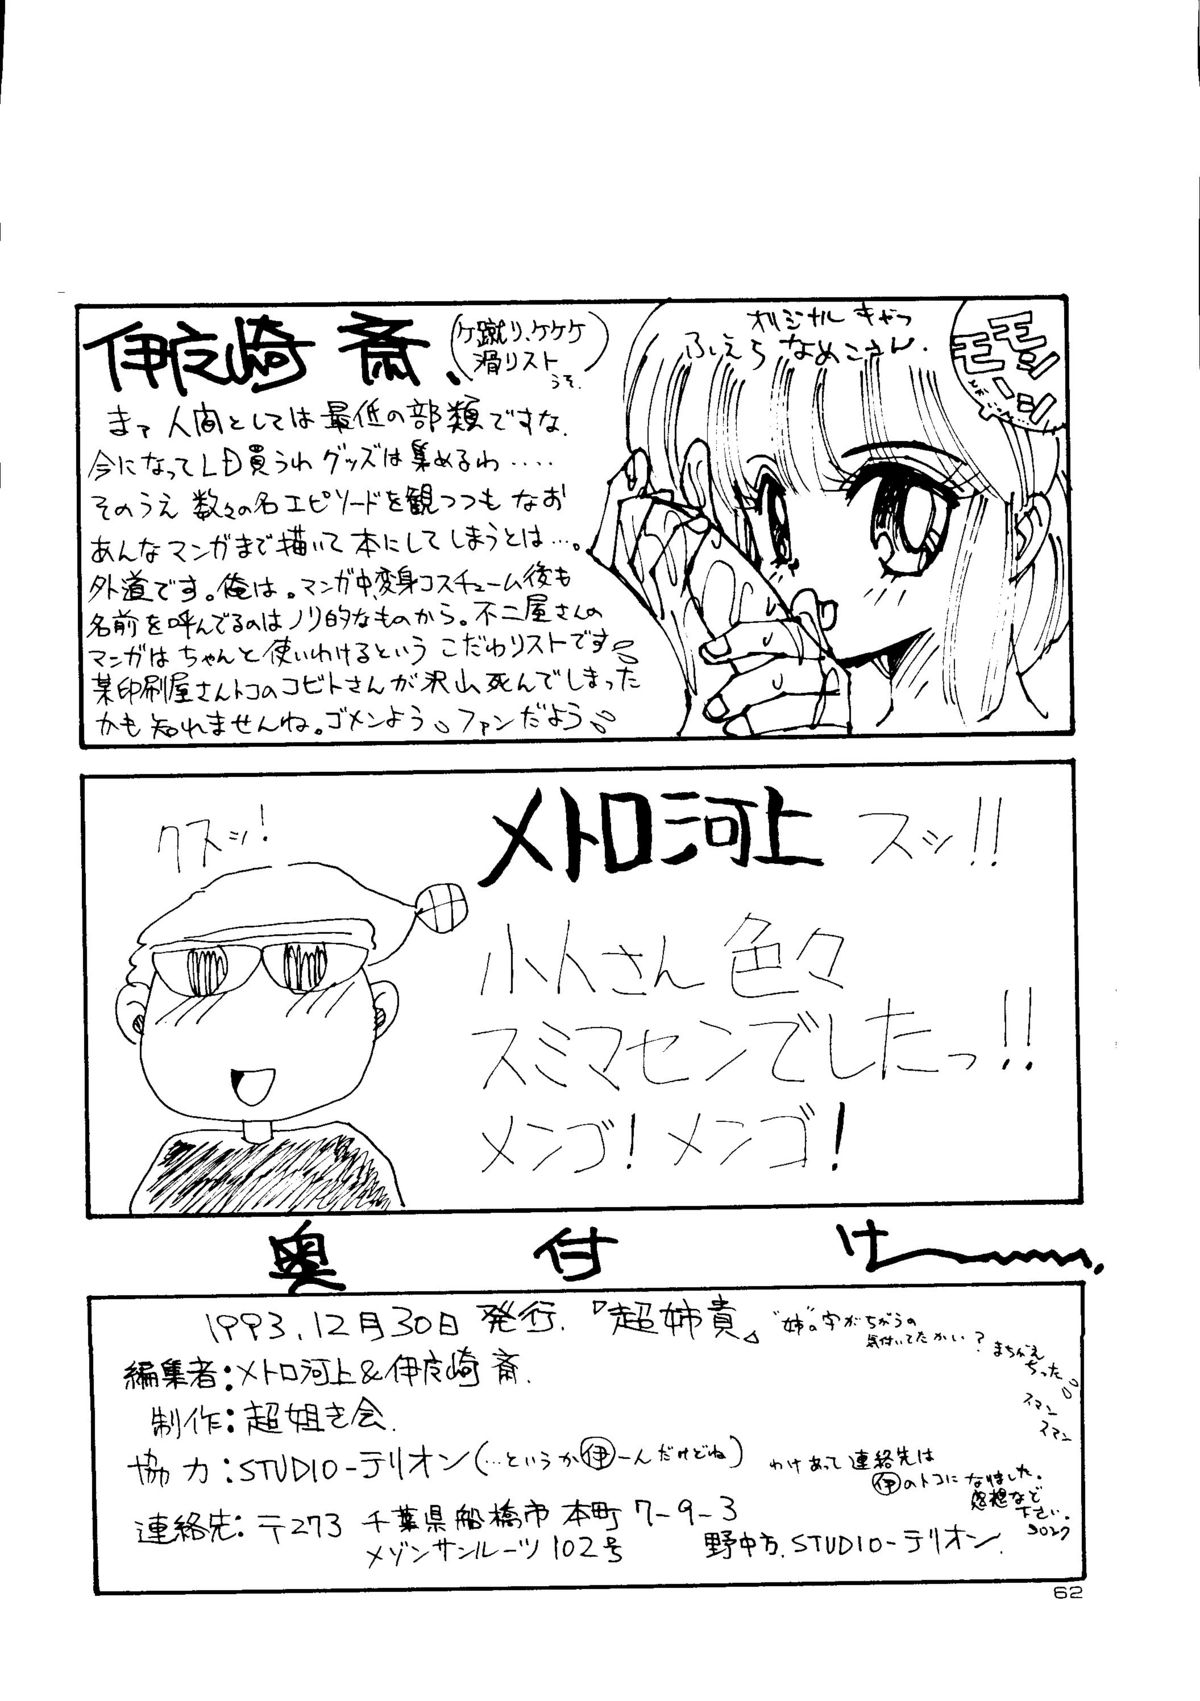 伊良崎 斎.
(ケ蹴り、ケケケ
滑リスト
うそ.)
オリジナルキャラ
ふえらなめこさん.
モモン
モ〜ン
まァ人間としては最低の部類ですな.
今になってLD買うわグッズは集めるわ‥‥
そのうえ数々の名エピソードを観つつもなお
あんなマンガまで描いて本にしてしまうとは…。
外道です。俺は。マンガ中、変身コスチューム後も
名前を呼んでるのはノリ的なものから。不二屋さんの
マンガはちゃんと使いわけるというこだわリストです
某印刷屋さんトコのコビトさんが沢山死んでしまった
かも知れませんね。ゴメンよう ファンだよう
クスッ!
メトロ河上 スッ!!
小人さん 色々
スミマセンでしたっ!!
メンゴ! メンゴ!
奥付け
1993.12月30日 発行.『超姉貴』
"姉"の字がちがうの
気付いてたかい?
まちがえ
ちった
スマン
スマン
編集者:メトロ河上&伊良崎 斎.
制作:超姐き会.
協力:STUDIO-テリオン(…というか伊一人だけどね)
わけあって連絡先は
伊のトコになりました.
感想など
下さい.
連絡先:〒273 千葉県船橋市本町7-9-3
メゾンサンルーツ102号 野中方.STUDIO-テリオン.
62